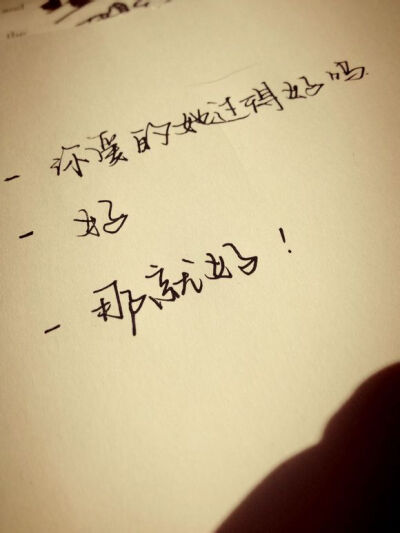 - 你爱的她过得好吗
- 好
- 那就好！